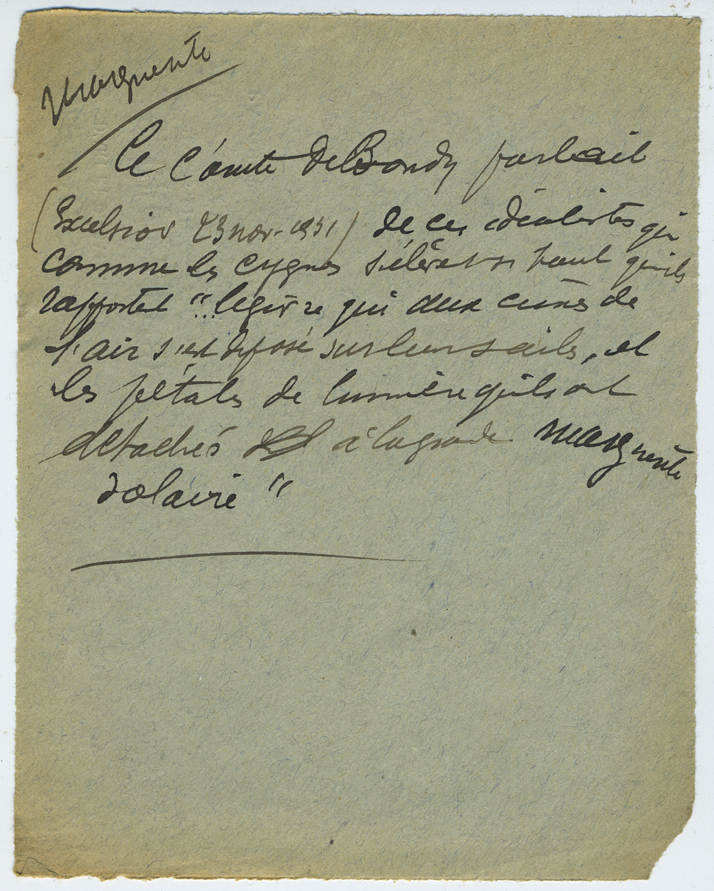 Marguerite
Le Comte de Bondy parlait
(Excelsior 23 nov. 1931) de ces idéalistes qui
comme les cygnes s'élèvent si haut qu'ils
rapportent "le givre qui aux cimes de
l'air s'est déposé sur leurs ailes, et
les pétales de lumière qu'ils ont
détachés à la grande marguerite
solaire"